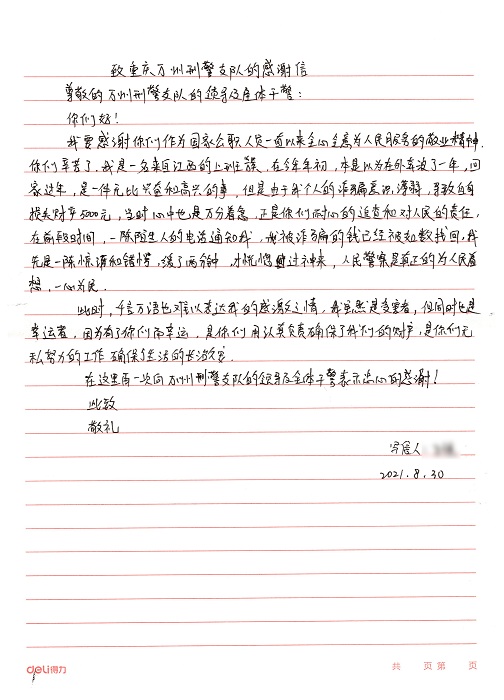 致重庆万州刑警支队的感谢信
尊敬的万州刑警支队的领导及全体干警：
你们好！
我要感谢你们作为国家公职人员一直以来全心全意为人民服务的敬业精神，
你们辛苦了，我是一名来自江西的上班族，在今年年初，本是以为在外奔波了一年，回
家过年，是一件无比兴奋和高兴的事，但是由于我个人的诈骗意识薄弱，导致自身
损失财产5000元，当时心中也是万分着急，正是你们耐心的追查和对人民的责任，
在前段时间，一陌陌生人的电话通知我，我被诈骗的钱已经被如数找回，我
先是一阵惊讶和错愕，缓了两分钟，才恍惚过神来，人民警察是真正的为人民着
想，一心为民。
此时，千言万语也难以表达我的感激之情，我虽然是受害者，但同时也是
幸运者，因为有了你们而幸运，是你们用认真负责确保了我们的财产，是你们无
私努力的工作确保了生活的长治久安。
在这里再一次向万州刑警支队的领导及全体干警表示忠心的感谢！
此致
敬礼
写信人：
2021.8.30
deli得力
共 页 第 页